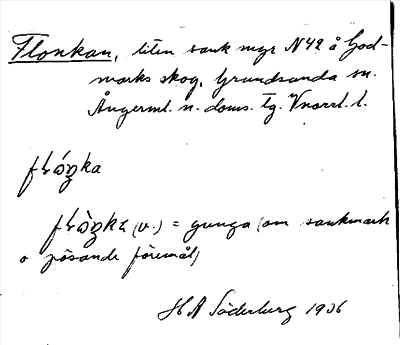 Flonkan, liten sank myr N42 å God-
marks skog, Grundsunda sn.
Ångerml. n. doms. tg. Vnorrl. l.
flóŋka
flòŋka (v.) = gunga (om sankmark
o pösande föremål)
H A Söderberg 1906